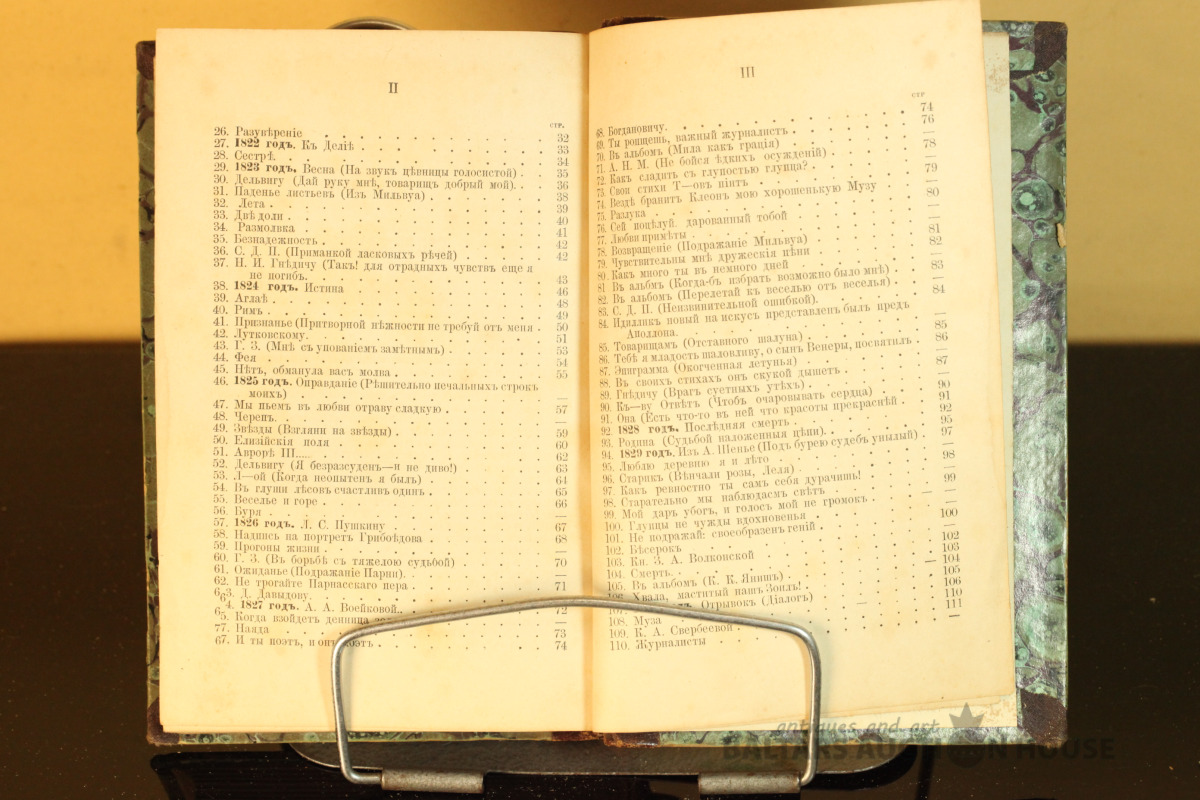 II
СТР.
26. Разувѣреніе 32
27. 1822 годъ. Къ Деліѣ 33
28. Сестрѣ. 34
29. 1823 годъ. Весна (На звукъ цѣвницы голосистой) 35
30. Дельвигу (Дай руку мнѣ, товарищъ добрый мой). 36
31. Паденье листьевъ (Изъ Мильвуа) 38
32. Лета 39
33. Двѣ доли 40
34. Размолвка 41
35. Безнадежность 42
36. С. Д. П. (Приманкой ласковыхъ рѣчей) 42
37. Н. И. Гнѣдичу (Такъ! для отрадныхъ чувствъ еще я
не погибъ. 43
38. 1824 годъ. Истина 46
39. Аглаѣ 48
40. Римъ 49
41. Признанье (Притворной нѣжности не требуй отъ меня 50
42. Лутковскому. 51
43. Г. З. (Мнѣ съ упованіемъ замѣтнымъ) 53
44. Фея 54
45. Нѣтъ, обманула васъ молва 55
46. 1825 годъ. Оправданіе (Рѣшительно печальныхъ строкъ
моихъ) —
47. Мы пьемъ въ любви отраву сладкую 57
48. Черепъ. —
49. Звѣзды (Взгляни на звѣзды) 59
50. Елизійскія поля 60
51. Аврорѣ Ш..... 62
52. Дельвигу (Я безразсуденъ—и не диво!) 63
53. Л—ой (Когда неопытенъ я былъ) 64
54. Въ глуши лѣсовъ счастливъ одинъ 65
55. Веселье и горе 66
56. Буря —
57. 1826 годъ. Л. С. Пушкину 67
58. Надпись на портретъ Грибоѣдова 68
59. Прогоны жизни —
60. Г. З. (Въ борьбѣ съ тяжелою судьбой) 70
61. Ожиданье (Подражаніе Парни). —
62. Не трогайте Парнасскаго пера 71
63. Д. Давыдову. —
4. 1827 годъ. А. А. Воейковой. 72
65. Когда взойдетъ денница —
77. Наяда 73
67. И ты поэтъ, и онъ поэтъ 74
III
СТР
68. Богдановичу. 74
69. Ты ропщешь, важный журналистъ 76
70. Въ альбомъ (Мила какъ грація) —
71. А. Н. М. (Не бойся ѣдкихъ осужденій) 78
72. Какъ сладить съ глупостью глупца? —
73. Свои стихи Т—овъ піитъ 79
74. Вездѣ бранитъ Клеонъ мою хорошенькую Музу —
75. Разлука 80
76. Сей поцѣлуй, дарованный тобой —
77. Любви примѣты —
78. Возвращеніе (Подражаніе Мильвуа) 81
79. Чувствительны мнѣ дружескія пѣни 82
80. Какъ много ты въ немного дней —
81 Въ альбмъ (Когда-бъ избрать возможно было мнѣ) 83
82. Въ альбомъ (Перелетай къ веселью отъ веселья) —
83. С. Д. П. (Неизвинительной ошибкой). 84
84. Идилликъ новый на искусъ представленъ былъ предъ
Аполлона. —
85. Товарищамъ (Отставного шалуна) 85
86. Тебѣ я младость шаловливу, о сынъ Венеры, посвятилъ 86
87. Эпиграмма (Окогченная летунья) —
88. Въ своихъ стихахъ онъ скукой дышетъ 87
89. Гнѣдичу (Врагъ суетныхъ утѣхъ) —
90. Къ—ву Отвѣтъ (Чтобъ очаровывать сердца) 90
91. Она (Есть что-то въ ней что красоты прекраснѣй 91
92 1828 годъ. Послѣдняя смерть 92
93. Родина (Судьбой наложенныя цѣпи). 95
94. 1829 годъ. Изъ А. Шенье (Подъ бурею судебъ унылый) 97
95. Люблю деревню я и лѣто —
96. Старикъ (Вѣнчали розы, Леля) 98
97. Какъ ревностно ты самъ себя дурачишь! —
98. Старательно мы наблюдаемъ свѣтъ 99
99. Мой даръ убогъ, и голосъ мой не громокъ —
100. Глупцы не чужды вдохновенья —
101. Не подражай: своеобразенъ геній 100
102. Бѣсерокъ —
103. Кн. З. А. Волконской 102
104. Смерть. 103
105. Въ альбомъ (К. К. Янишъ) — 104
106. Хвала, маститый нашъ Зоилъ! 105
107. Отрывокъ (Діалогъ) 106
108. Муза 110
109. К. А. Свербеевой 111
110. Журналисты —
antiques and art
BALTARS AUCTION HOUSE